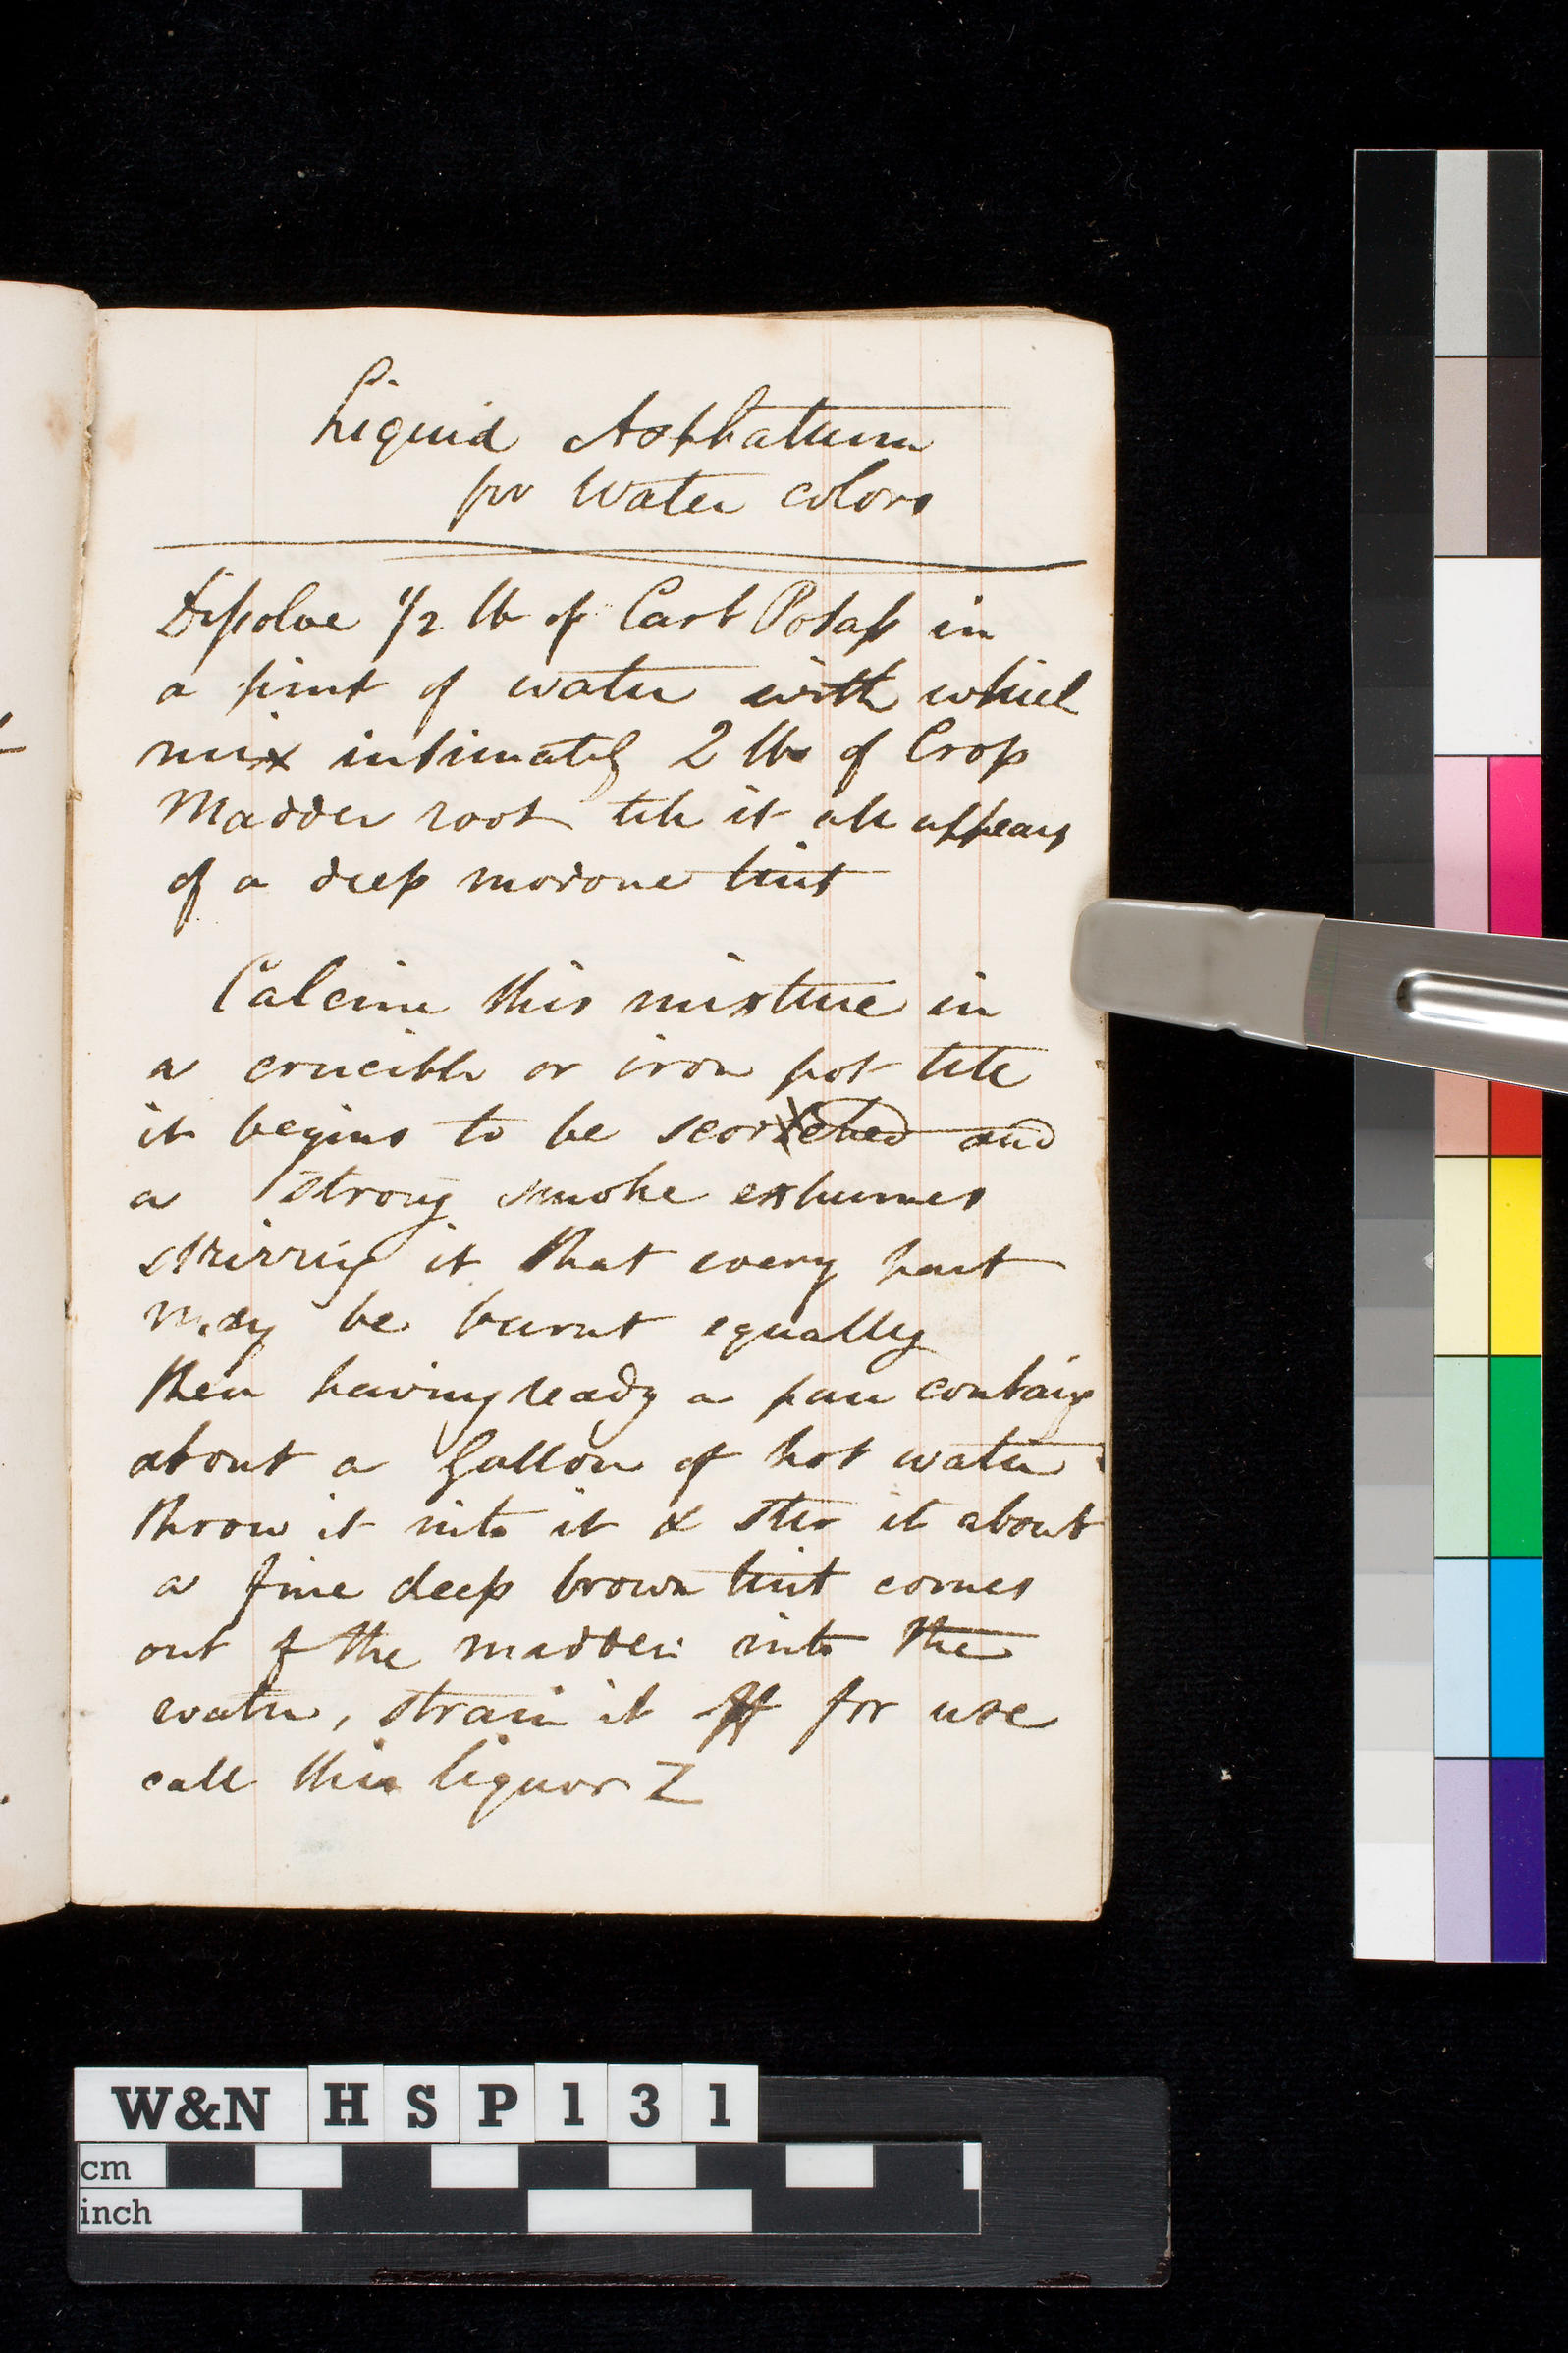 Liquid Asphaltum
for Water colors
Dissolve 1/2 lb of Carb Potass in
a pint of water with which
mix intimately 2 lbs of Crop
Madder root till it all appears
of a deep morone tint
Calcine this mixture in
a crucible or iron pot till
it begins to be scorched and
a strong smoke exhumes
stirring it that every part
may be burnt equally
then having ready a pan containg
about a Gallon of hot water
throw it into it & stir it about
a fine deep brown tint comes
out of the madder into the
water, strain it off for use
call this liquor Z
W&N HSP131
cm
inch